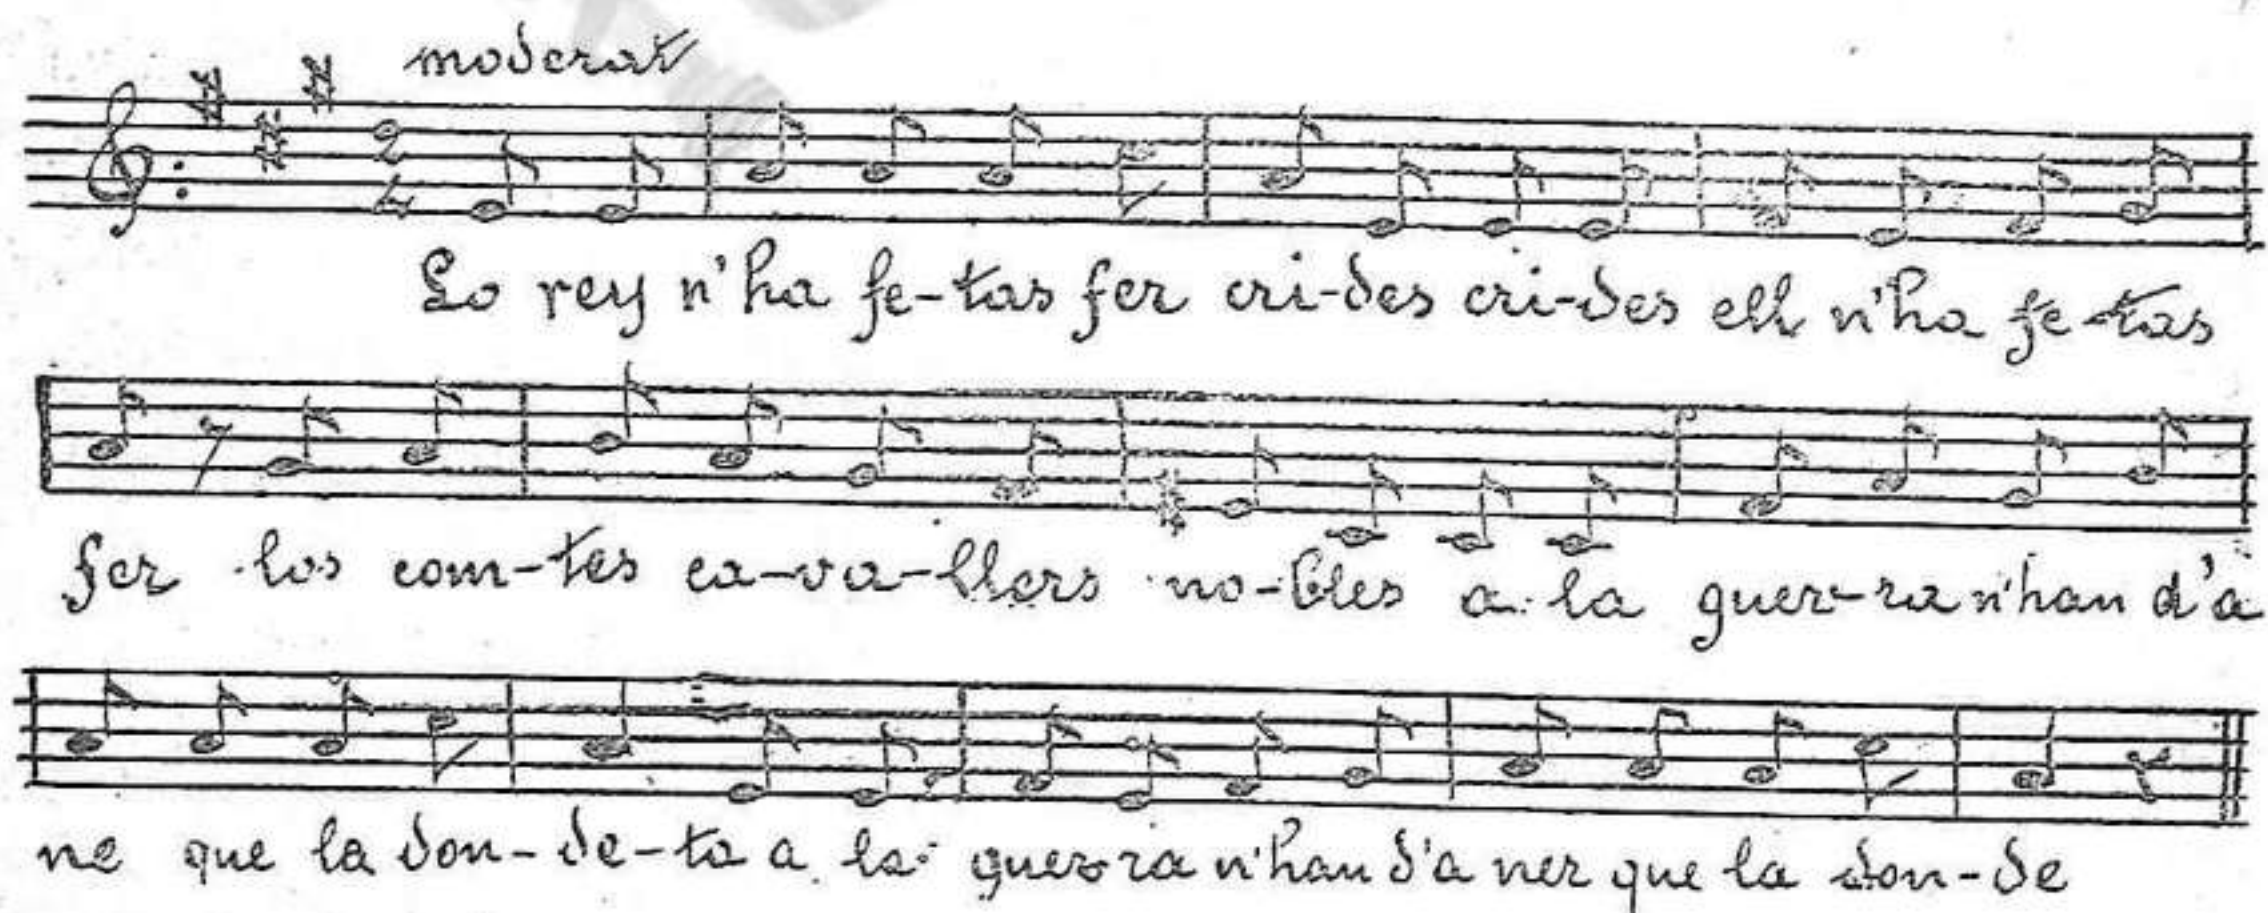 moderat
2
4
Lo rey n'ha fe-tas fer cri-des cri-des ell n'ha fe-tas
fer los com-tes ca-va-llers no-bles a la guer-ra n'han d'a
ne que la don-de-ta a la guer-ra n'han d'a ner que la don-de